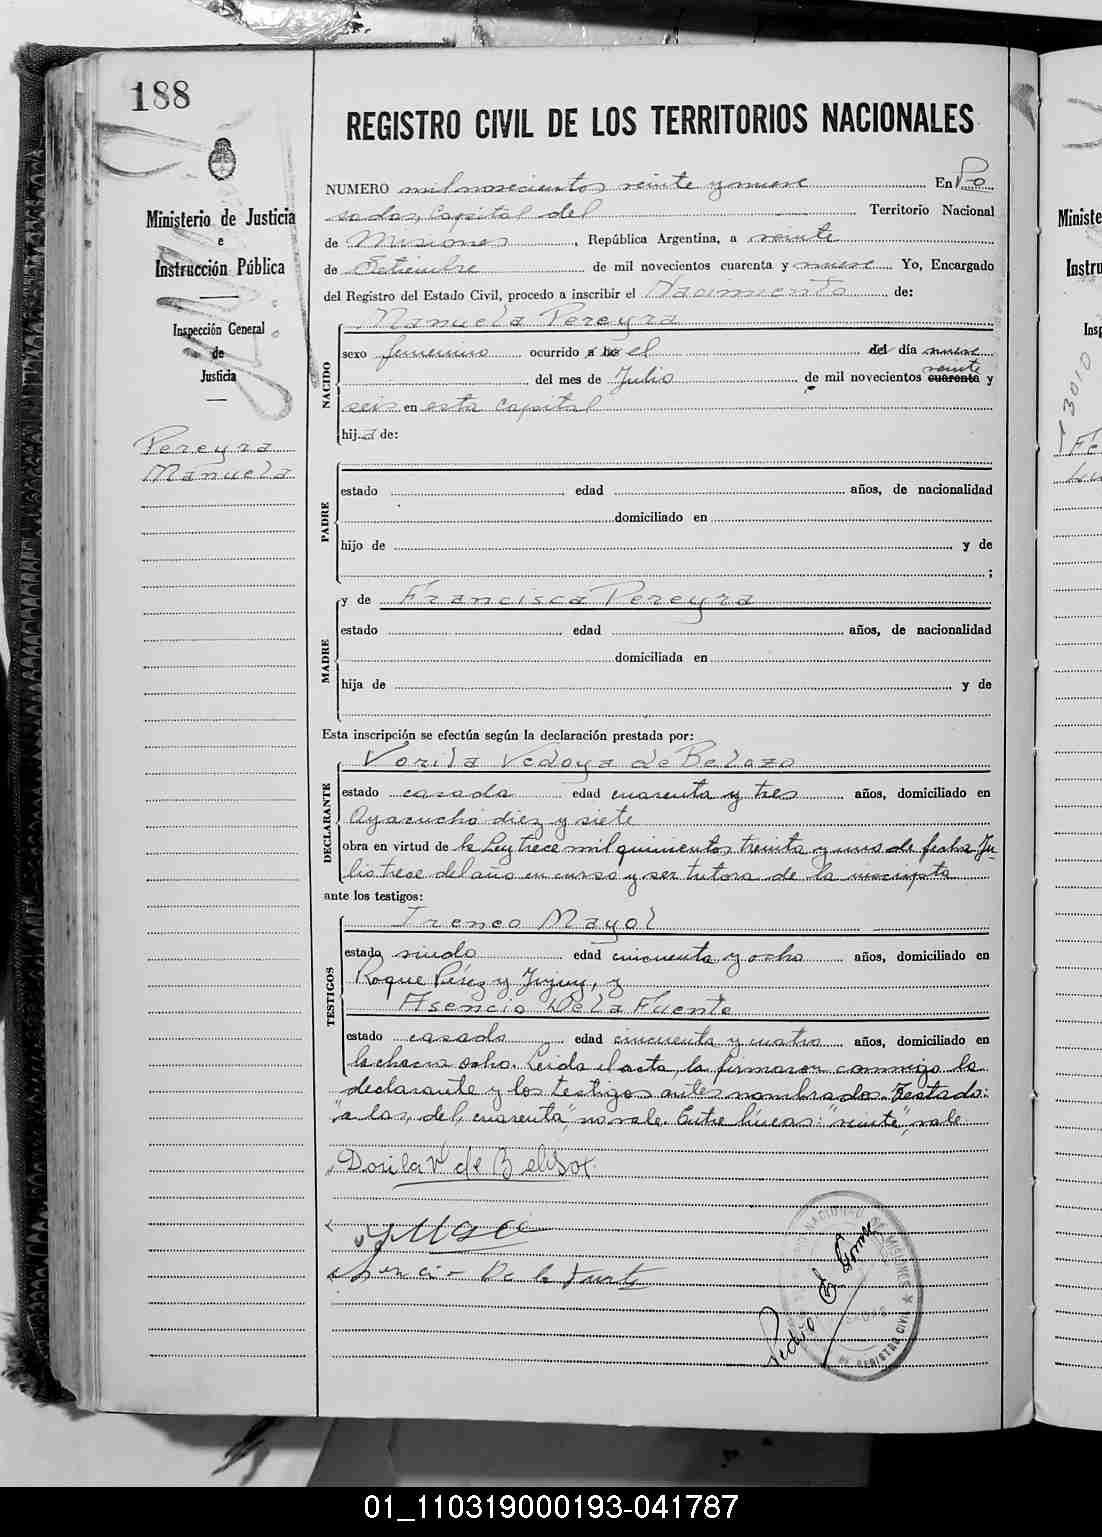 188
REGISTRO CIVIL DE LOS TERRITORIOS NACIONALES
Ministerio de Justicia
e
Instrucción Pública
Inspección General
de
Justicia
Pereyra
Manuela
NUMERO mil novecientos veinte y nueve En Po
sadas, Capital del Territorio Nacional
de Misiones, República Argentina, a veinte
de Setiembre de mil novecientos cuarenta y nueve Yo, Encargado
del Registro del Estado Civil, procedo a inscribir el Nacimiento de:
NACIDO
Manuela Pereyra
sexo femenino ocurrido a las el del día nueve
veinte
del mes de Julio de mil novecientos cuarenta y
seis en esta capital
hija de:
PADRE
estado edad años, de nacionalidad
domiciliado en
hijo de y de
;
MADRE
y de Francisca Pereyra
estado edad años, de nacionalidad
domiciliada en
hija de y de
Esta inscripción se efectúa según la declaración prestada por:
DECLARANTE
Vedoya de
estado casada edad cuarenta y tres años, domiciliado en
Ayacucho diez y siete
obra en virtud de la Ley trece mil quinientos treinta y uno de fecha Ju
lio trece del año en curso y ser tutora de la inscripta
ante los testigos:
TESTIGOS
Ireneo Mayol
estado viudo edad cincuenta y ocho años, domiciliado en
Roque Pérez y Jujuy, y
Asencio De La Fuente
estado casado edad cincuenta y cuatro años, domiciliado en
la chacra ocho. Leida el acta, la firmaron conmigo la
declarante y los testigos antes nombrados. Testado:
"a las, del, cuarenta", no vale. Entre líneas: "veinte", vale
Dorila V de
Asencio De la Fuente
Pedro
MISIONES
REGISTRO CIVIL
3010
Ministe
Instru
Insp
01_110319000193-041787